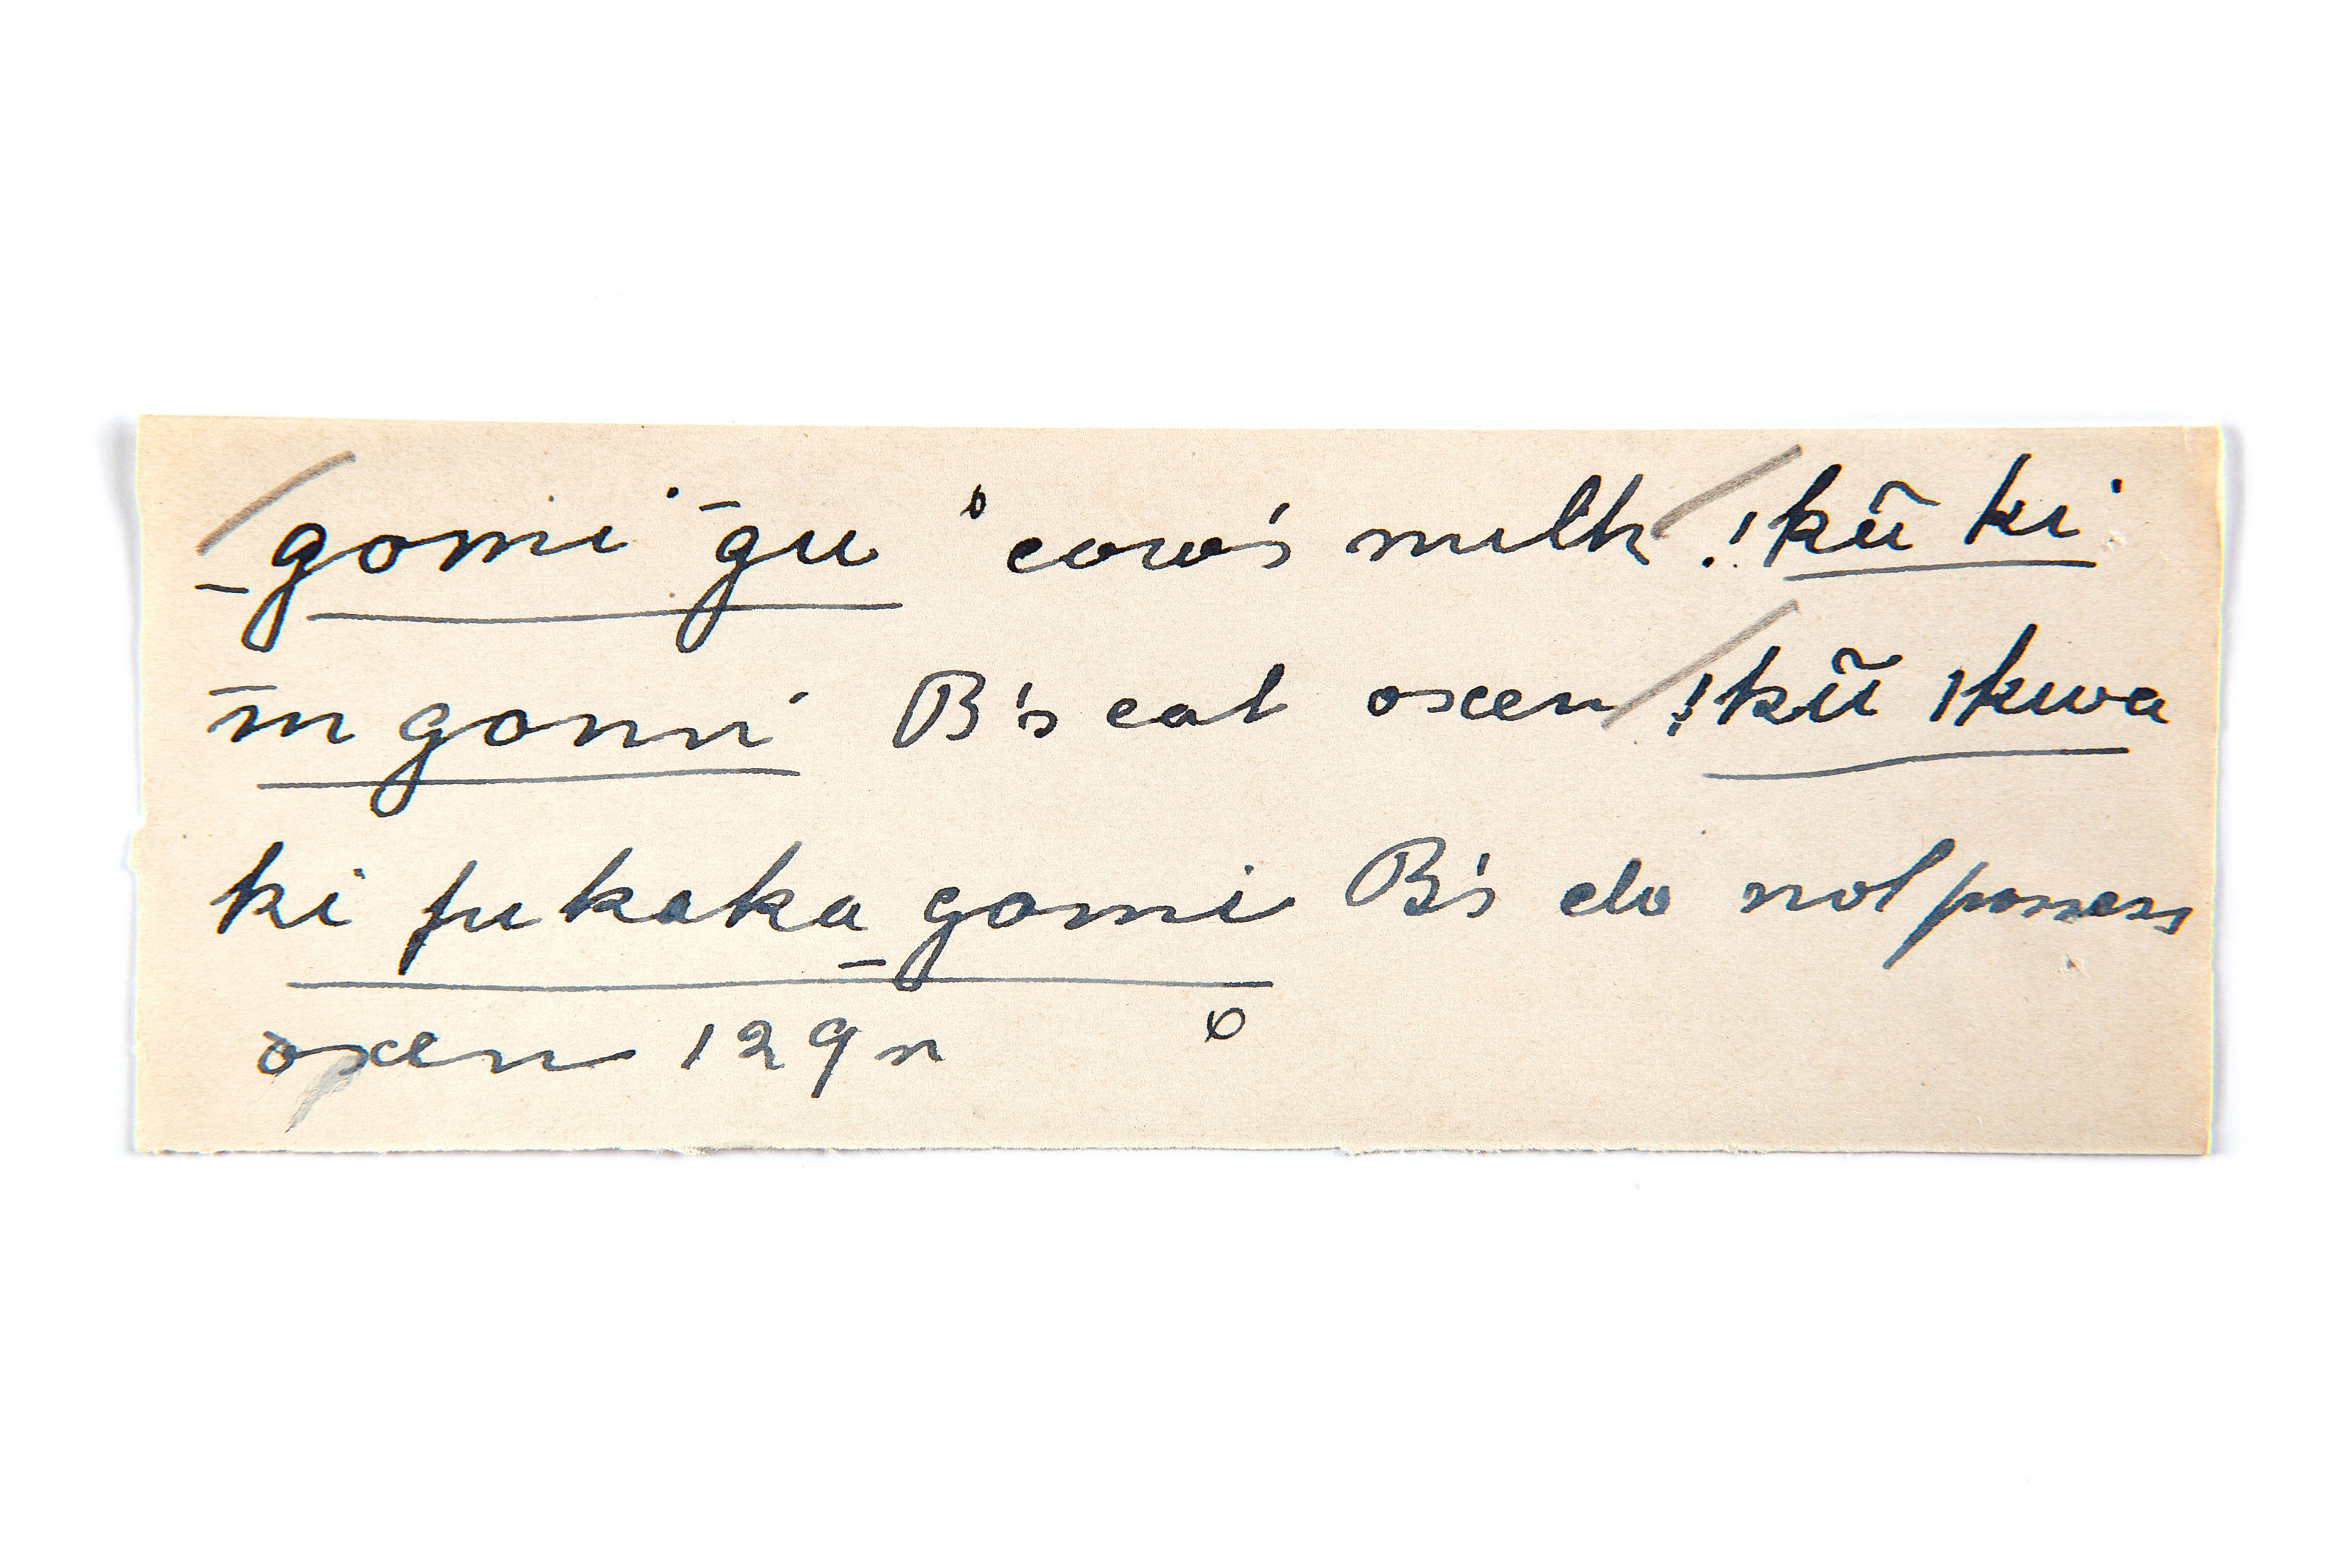 _gomi ̄gu cow's milk !kũ ki
m̄ gomi B's eat oxen !kũ ıkwa
ki fukaka _gomi B's do not possess
oxen 129n